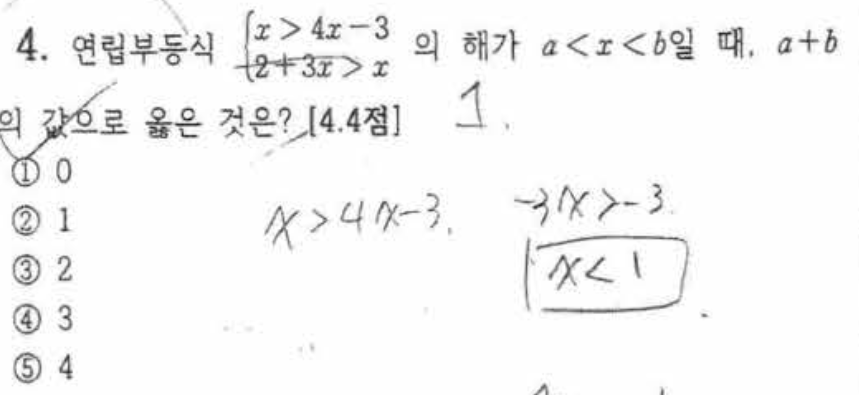 4. 연립부등식 { x > 4x - 3
2 + 3x > x 의 해가 a < x < b일 때, a + b
의 값으로 옳은 것은? [4.4점] 1.
① 0
② 1
x > 4x - 3. -3x > -3.
x < 1
③ 2
④ 3
⑤ 4